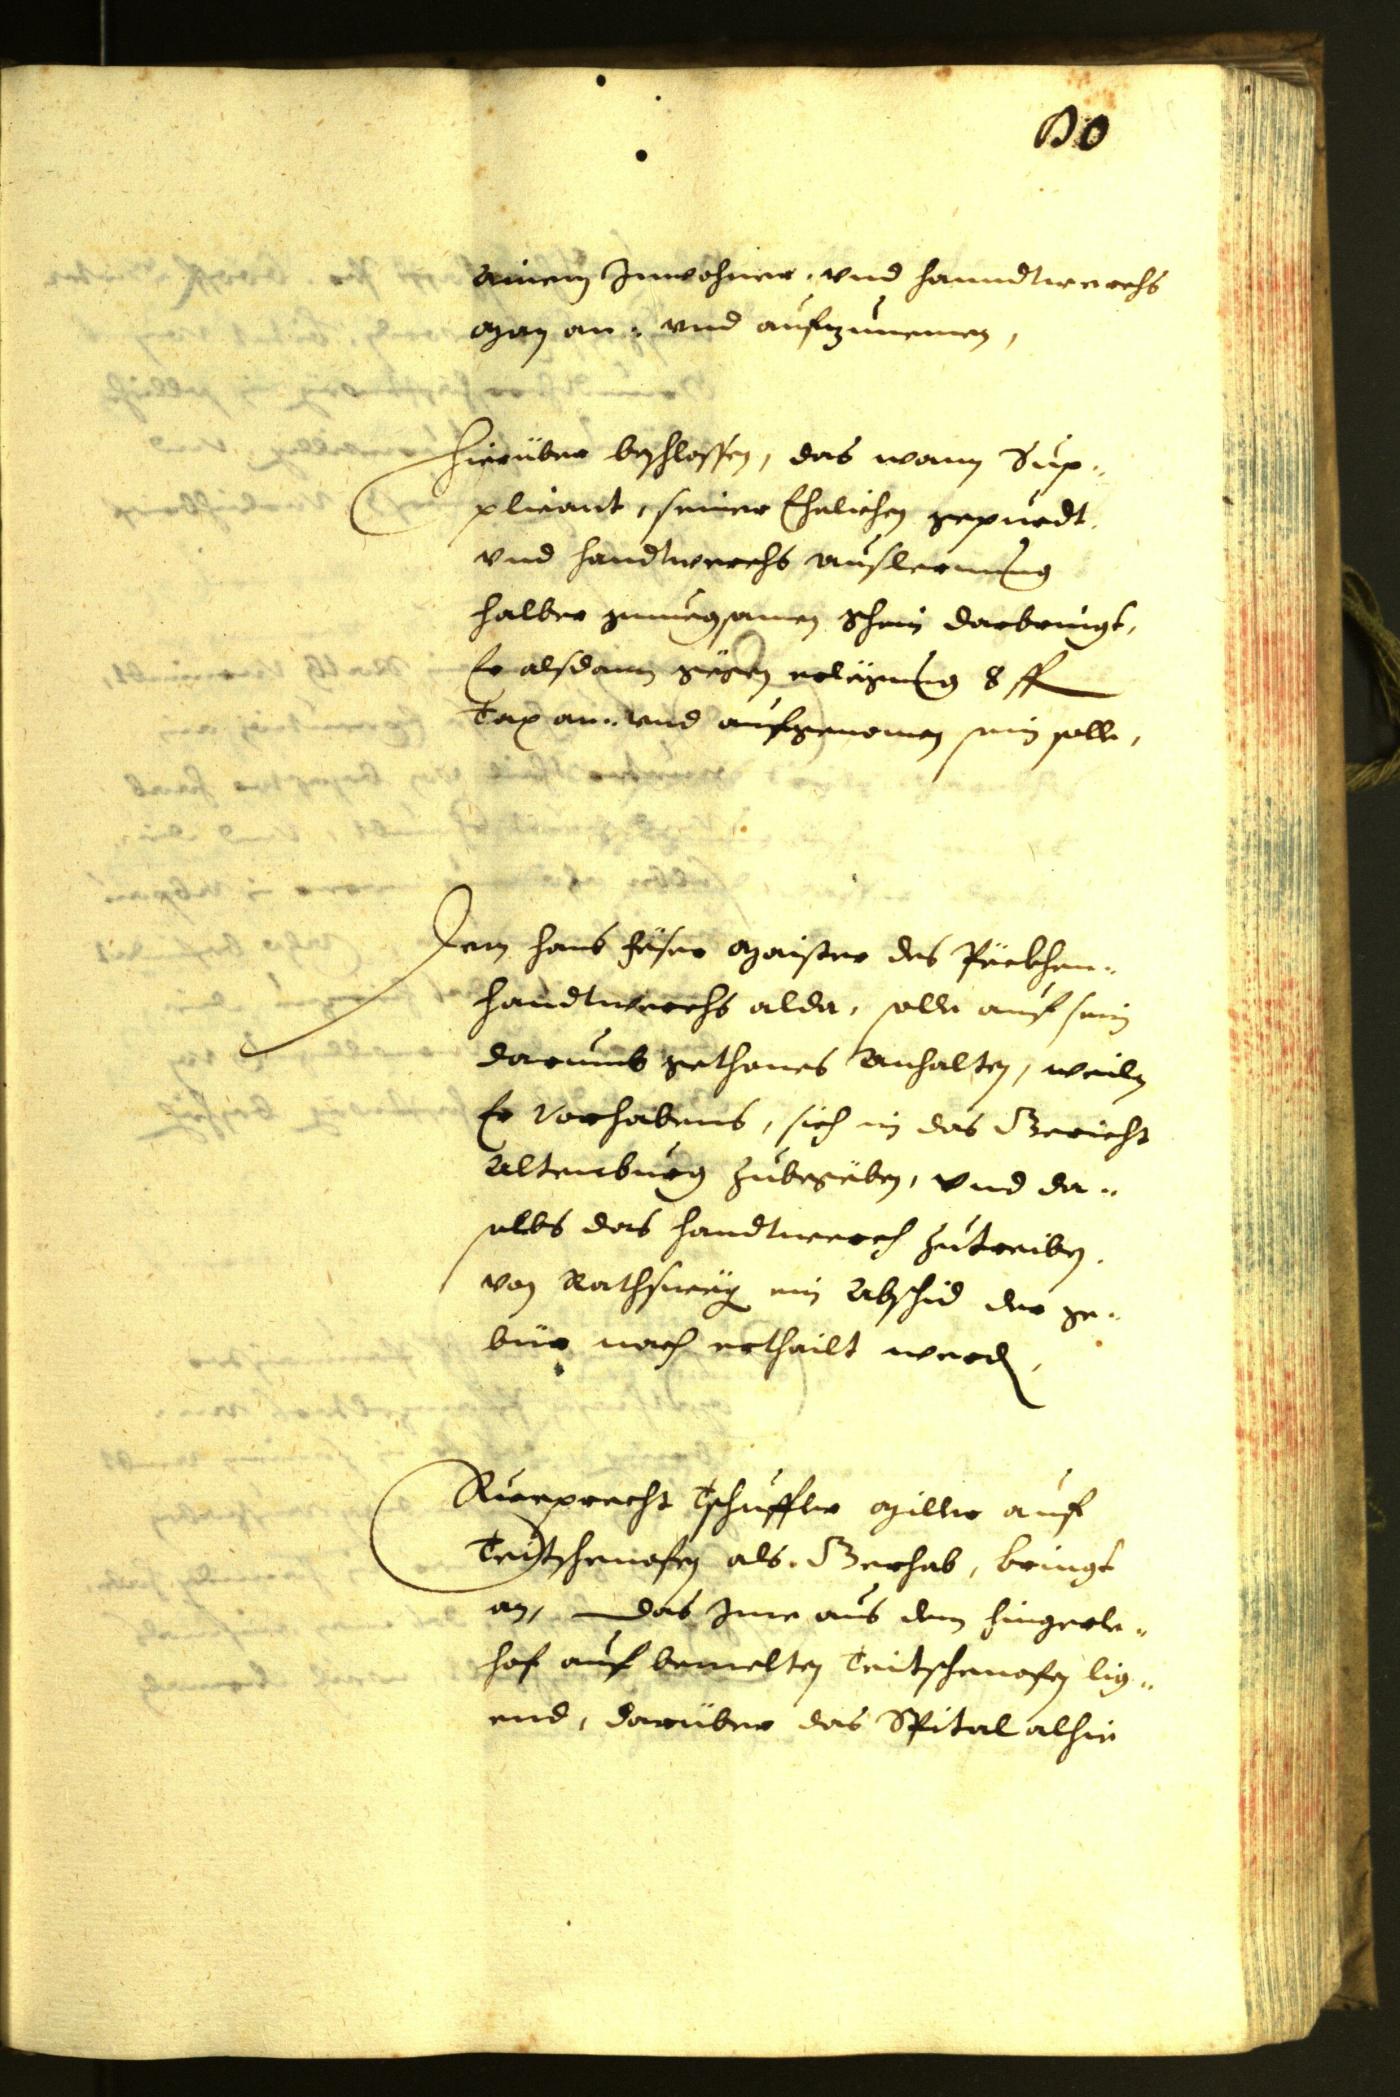 80
ainem Inwohner, vnd hanndtwerchs
man an- vnd aufzunemen,
Hierüber beschlossen, das wann Sup-
plicant, seiner Ehelichen gepurdt,
vnd handtwerchs auslernung
halber gnuegsamen schein darbringt,
Er alsdann gegen erlegung 8 ff
Tax an- vnd aufgenomen sein solle,
Dem Hans maister des Peckhen-
handtwerchs alda, solle auf sein
darumb gethanes Anhalten, weiln
Er Vorhabens, sich in das Gericht
Altenburg zubegeben, vnd da-
selbs das handtwerch zutreiben,
von Rathsweg ein Abschid der ge-
bür nach erthailt werden,
Rueprecht Tschuffler miller auf
Teitschenofen als Gerhab, bringt
an, das Ime aus dem
hof auf bemelten Teitschenofen lig-
end, darüber das Spital alhie